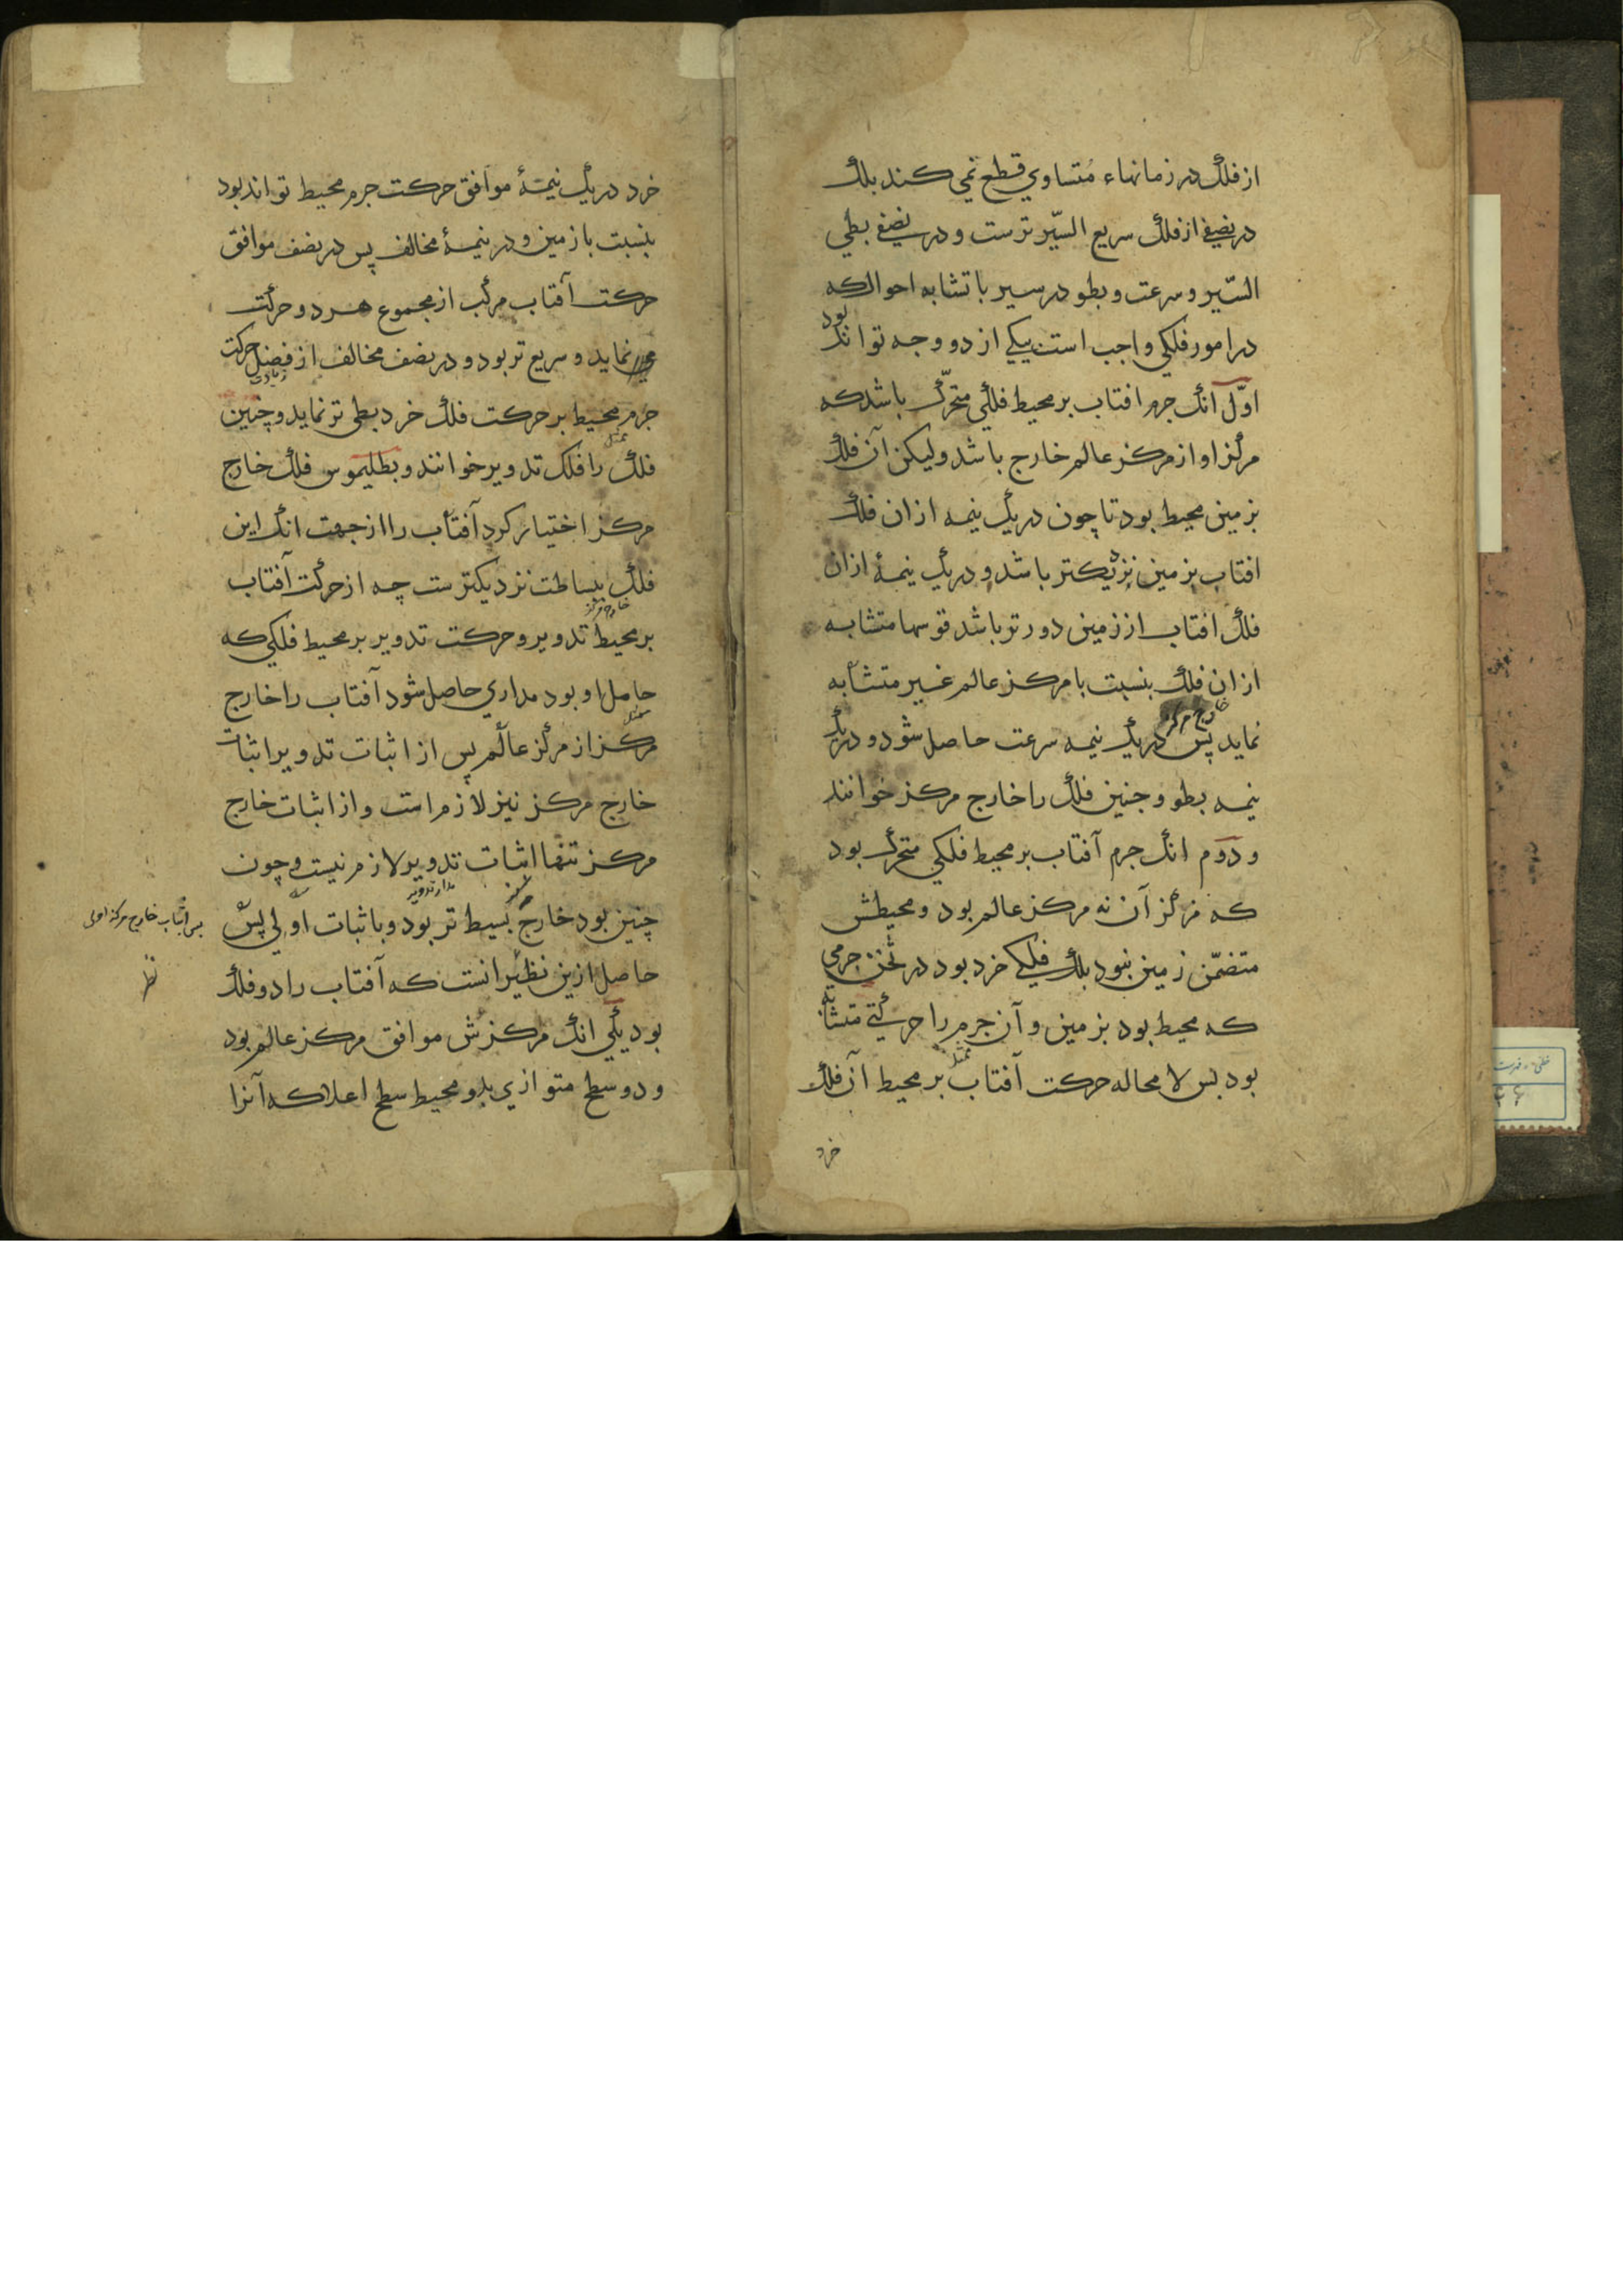 از فلک در زمانهاء مُتساوي قطع نمي کند بلک
در نصفي از فلک سريع السّير ترست و در نصفي بطي
السّير و سرعت و بطو در سير با تشابه احوال که
در امور فلکي واجب است يکي از دو وجه تواند بود
اوّل آنک جرم افتاب بر محيط فلکي متحرّک باشد که
مرکز او از مرکز عالم خارج باشد وليکن آن فلک
بزمين محيط بود تا چون در يک نيمه ازان فلک
افتاب بزمين نزديکتر باشد و در يک نيمهٔ ازان
فلک افتاب از زمين دورتر باشد قوسها متشابه
ازان فلک بنسبت با مرکز عالم غير متشابه
نمايد پس در يک نيمه سرعت حاصل شود و در يک
خارج مرکز
نيمه بطو و چنين فلک را خارج مرکز خوانند
و دوم انک جرم آفتاب بر محيط فلکي متحرک بود
که مرکز آن نه مرکز عالم بود و محيطش
متضمّن زمين نبود بلک فلکي خرد بود در ثخن جرمي
که محيط بود بزمين و آن جرم را حرکتي متشابه
بود پس لا محاله حرکت آفتاب بر محيط آن فلک
ممثل
خرد
خرد در يک نيمهٔ موافق حرکت جرم محيط تواند بود
بنسبت با زمين و در نيمهٔ مخالف پس در نصف موافق
حرکت آفتاب مرکب از مجموع هر دو حرکت
نمايد و سريع تر بود و در نصف مخالف از فضل حرکت
زيادتي
جرم محيط بر حرکت فلک خرد بطي تر نمايد و چنين
ممثل
فلک را فلک تدوير خوانند و بطليموس فلک خارج
مرکز اختيار کرد آفتاب را از جهت انک اين
فلک ببساطت نزديکترست چه از حرکت آفتاب
خارج مرکز
بر محيط تدوير و حرکت تدوير بر محيط فلکي که
حامل او بود مداري حاصل شود آفتاب را خارج
ممثل
مرکز از مرکز عالم پس از اثبات تدوير اثبات
خارج مرکز نيز لازم است و از اثبات خارج
مرکز تنها اثبات تدوير لازم نيست و چون
از تدوير
چنين بود خارج بسيط تر بود و باثبات اولي پس
پس اثبات خارج مرکز اولي
حاصل ازين نظير انست که آفتاب را دو فلک
نظر
بود يکي انک مرکزش موافق مرکز عالم بود
و دو سطح متوازي بدو محيط سطح اعلا که آنرا